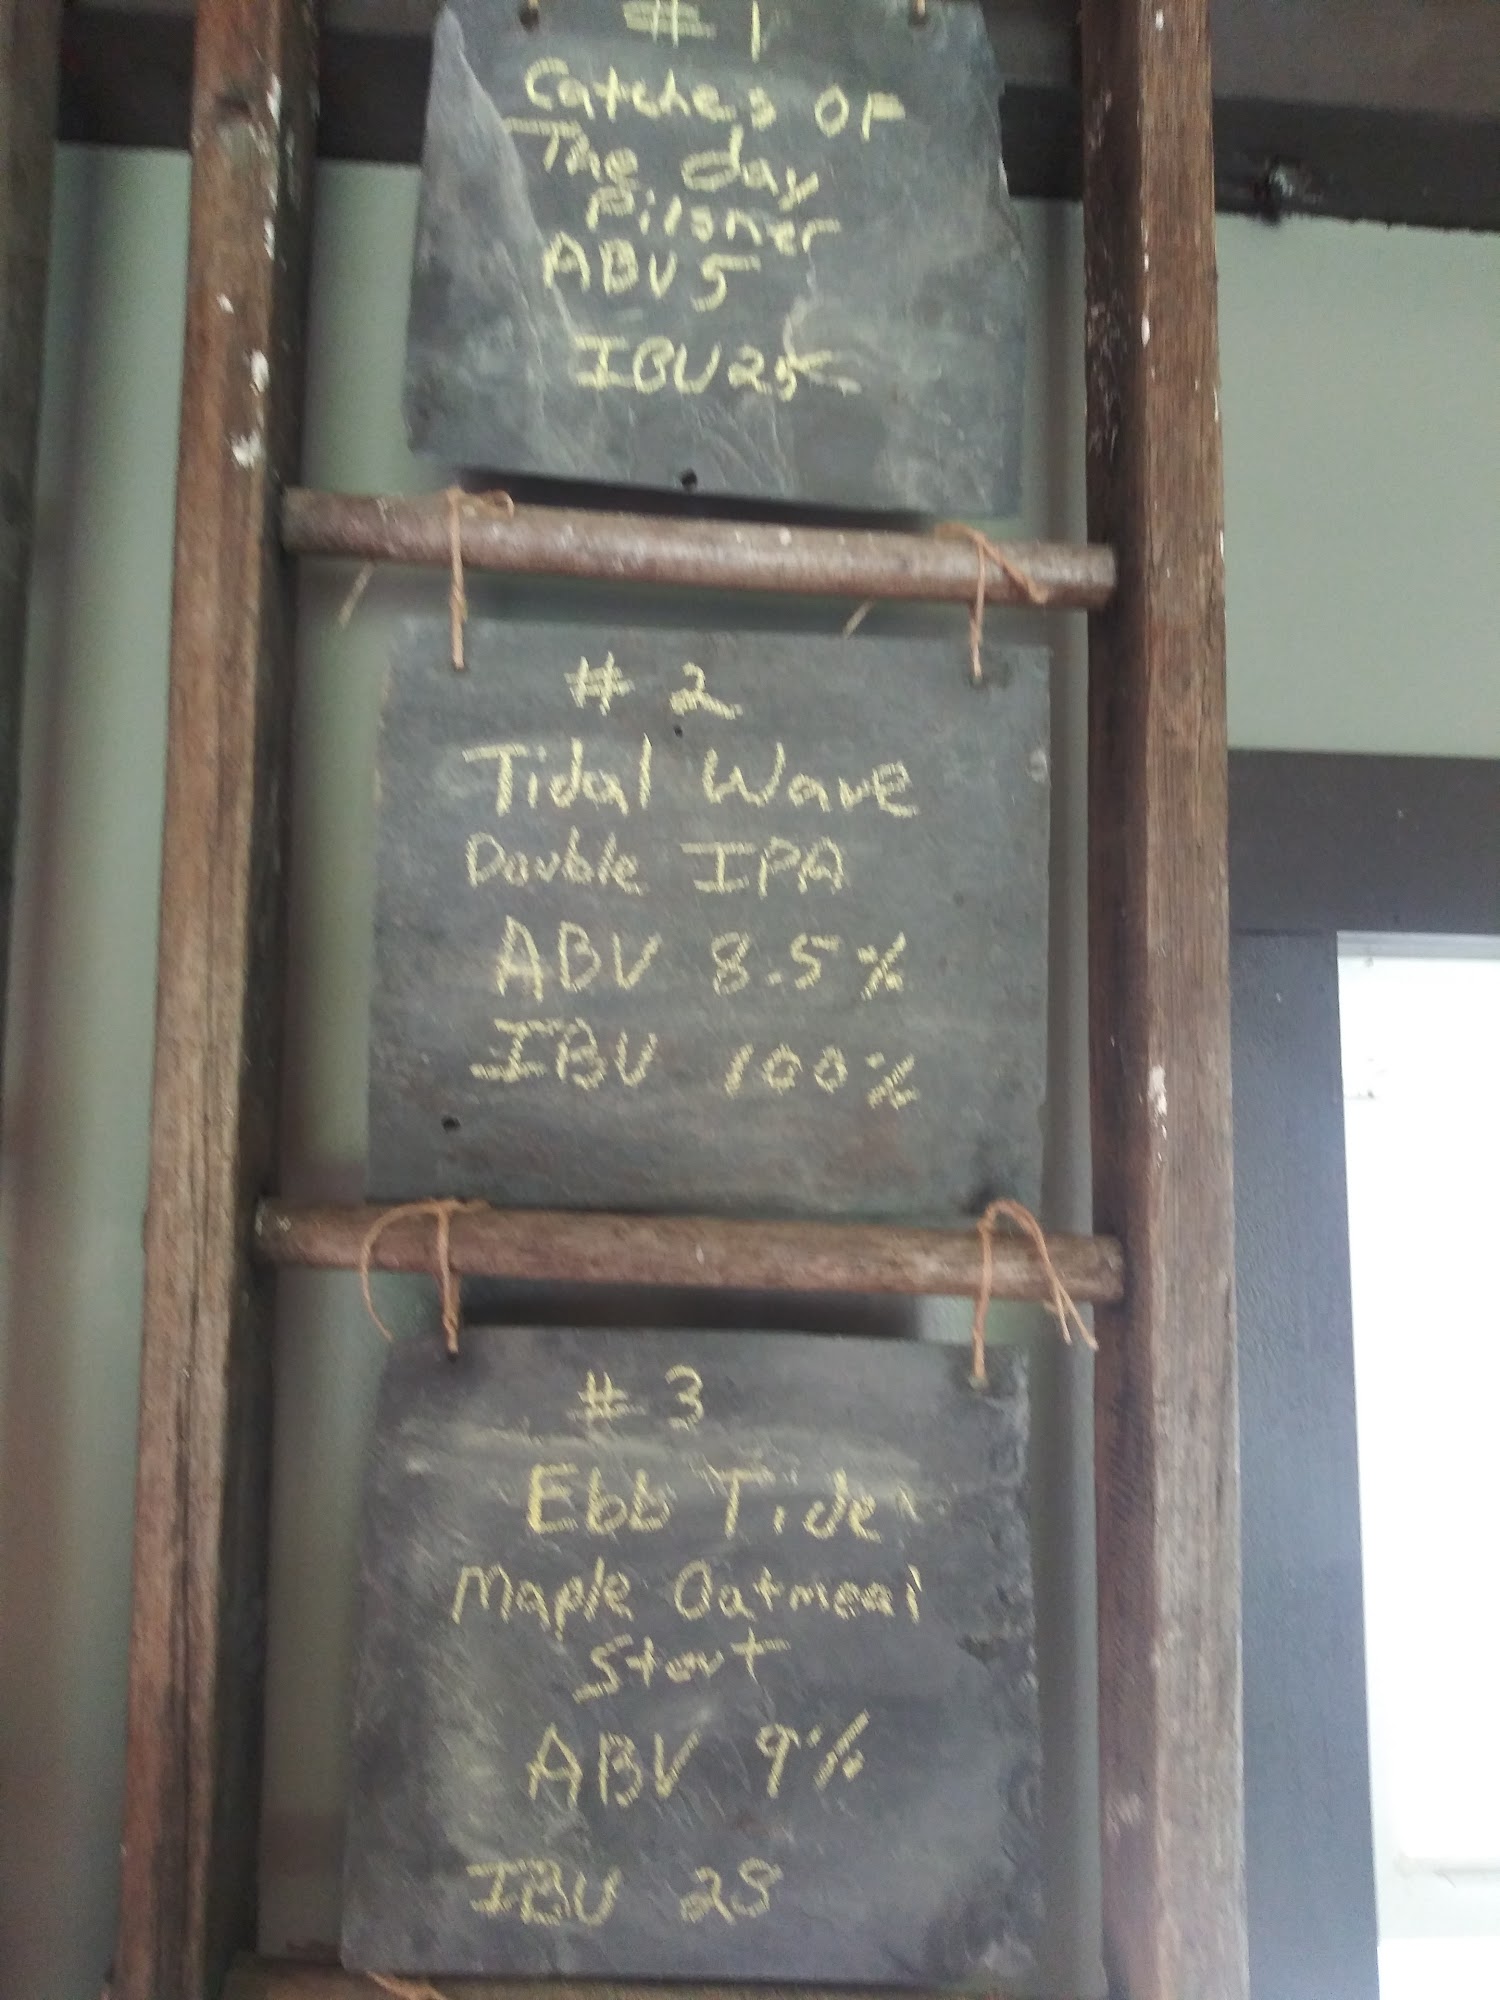 # 1
Catches OF
The day
Pilsner
ABV 5
IBU 25
# 2
Tidal Wave
Double IPA
ABV 8.5%
IBU 100%
# 3
Ebb Tide
Maple Oatmeal
Stout
ABV 9%
IBU 28